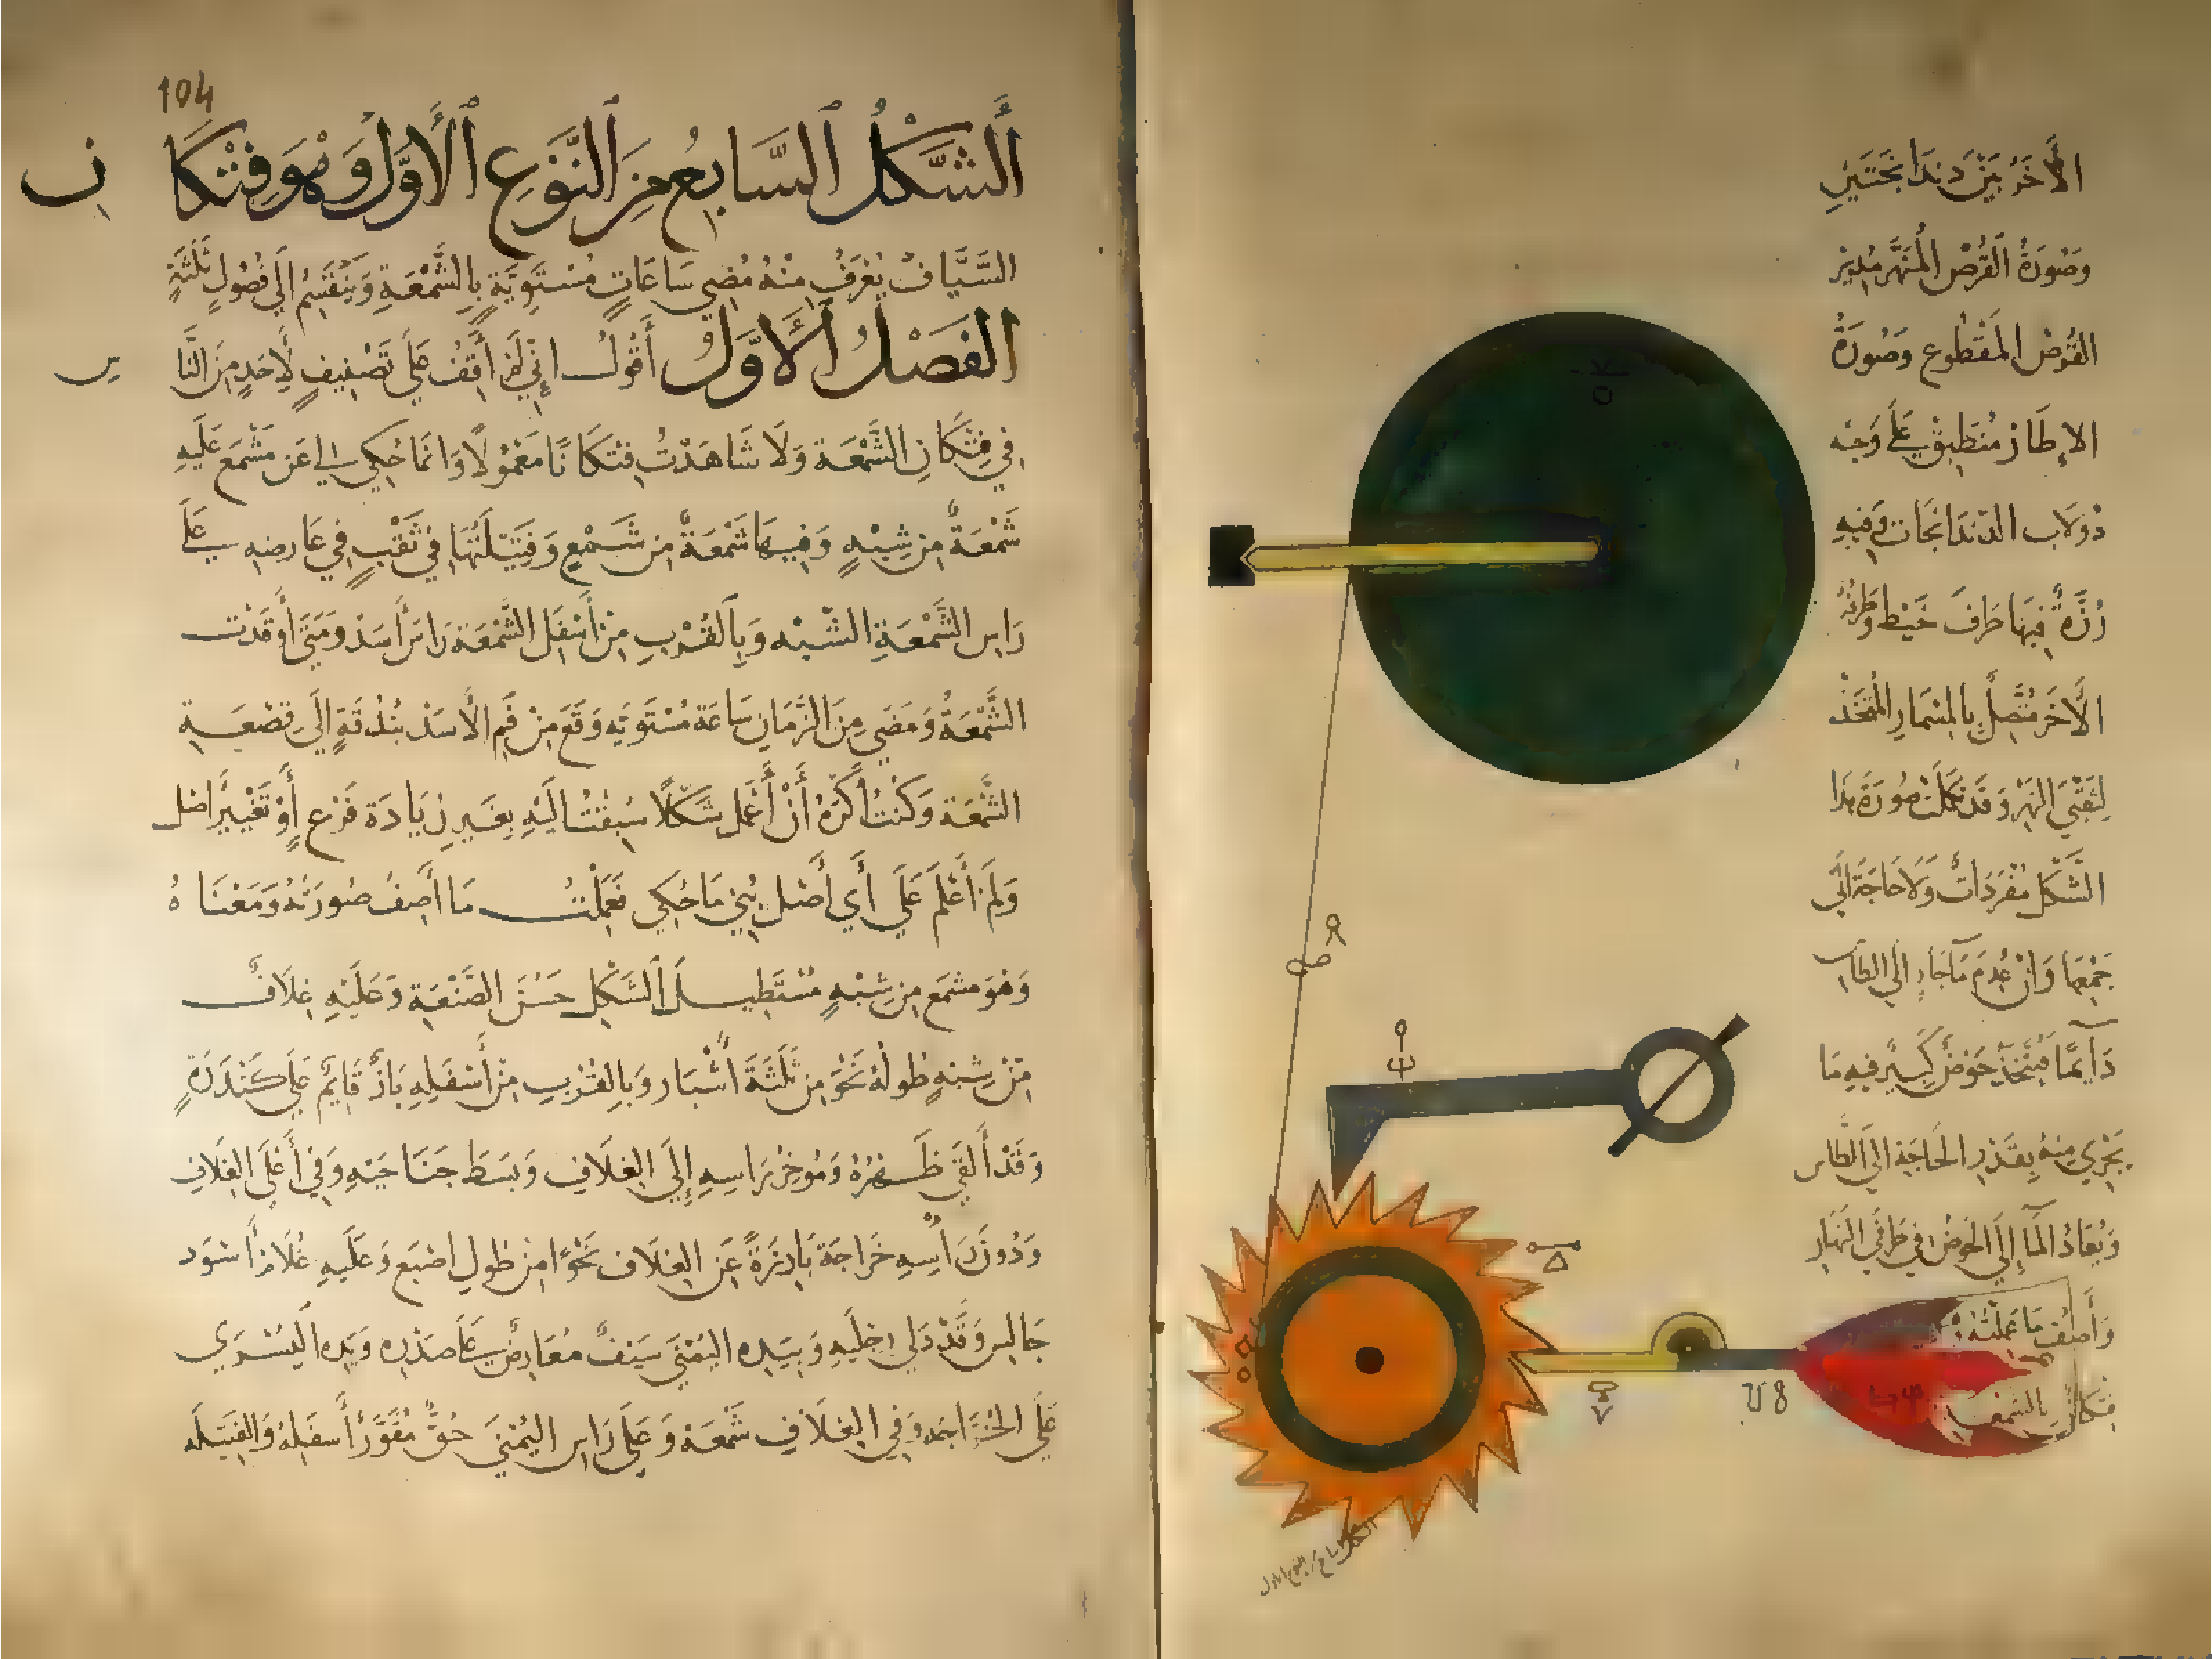 الأخر بين دندانجتين
وصورة القرص المنهر مدير
القرص المقطوع وصورة
الإطار منطبق على وجه
دولاب الدندانجات وفيه
رزة فيها طرف خيط وطرفه
الآخر متصل بالمسمار المتخذ
لثقبي النهر وقد تكملت صورة هذا
الشكل مفردات ولا حاجة إلى
جمعها وان عدم ماء جار إلى الطاس
دايما فيتخذ حوض كبير فيه ما
يجري منه بقدر الحاجة الى الطاس
ويعاد الما إلى الحوض في طرفي النهار
وأصف ما عملته
فنكان بالشمعة
104
الشَّكْلُ السَّابِعُ مِنَ النَّوْعِ الْأَوَّلِ وَهُوَ فِنْكَان
السَّيَّاف يُعْرَفُ مِنْهُ مُضِي سَاعَاتٍ مُسْتَوِيَةٍ بِالشَّمْعَةِ وَيَنْقَسِمُ إلَى فُصُولٍ ثَلَثَةٍ
الفَصْلُ الْأَوَّلُ أَقُولُ إنِّي لَمْ أَقِفْ عَلَى تَصْنِيفٍ لِأَحَدٍ مِنَ النَّاس
فِي فِنْكَانِ الشَّمْعَة وَلَا شَاهَدْتُ فِنْكَانًا مَعْمُولًا وَانمَا حُكِي لي عَن مَشْمَع عَلَيهِ
شَمْعَةٌ مِن شِبْهٍ وَفِيهَا شَمْعَةٌ مِن شَمْعٍ وَفَتِيلَتُهَا فِي ثَقْبٍ فِي عَارضه عَلَى
رَاس الشَّمْعَةِ الشبْه وَبِالقُرْبِ مِنْ أَسْفَل الشَّمْعَة رَاسُ أسَد وَمَتَى أوقَدْت
الشَّمْعَةُ وَمَضَى مِنَ الزَّمَانِ سَاعَة مُسْتَوِيَه وَقَعَ مِنْ فَمِ الأسَد بُنْدُقَةٍ إلَى قِصْعَةِ
الشَّمْعَة وَكُنْتُ أكْرَهُ أنْ أَعْمَلَ شَكْلًا سُبِقْتُ الَيْهِ بِغَيرِ زِيَادَة فَرْع أَوْ تَغْيِيرِ اصل
وَلَمْ أَعْلَمْ عَلَى أَي أَصْل بُنِيَ مَا حُكِي فَعَمِلْتُ مَا أصِفُ صُورَتَهُ وَمَعْنَاهُ
وَهُوَ مشمَع مِن شِبْهٍ مُسْتَطِيل الشَكْل حَسَنَ الصَّنْعَةِ وَعَلَيْهِ غِلَافٌ
مِنْ شِبْهٍ طُولُهُ نَحْوٌ مِن ثَلَثَةَ أشْبَار وَبِالقُرْبِ مِنْ أسْفَلِهِ بَازٌ قَايِمٌ عَلَى كَنْدَرَةٍ
وَقَدْ أَلقَى ظَهْرَهُ وَمُوخِرَ رَاسِهِ إلَى الغِلَافِ وَبسَطَ جَنَاحَيْهِ وَفِي أعْلَى الغِلَافِ
وَدُونَ رَأسِهِ خَرَاجَة بَارِزَةً عَن الغِلَاف نَحْوًا مِن طُولِ اصْبَع وَعَلَيهِ غُلَامٌ أسْوَد
جَالِس وَقَدْ دَلى رجلَيهِ وَبِيَدِه اليُمْنَى سَيفٌ مُعَارِضٌ عَلَى صَدْرِه وَيَدِه اليُسْرَى
عَلَى الخراجة وَفي الغِلَافِ شَمْعَة وَعَلَى رَاس اليُمْنَى حُقٌّ مُقَوَّرٌ أسفَلهُ وَالفَتِيلَه